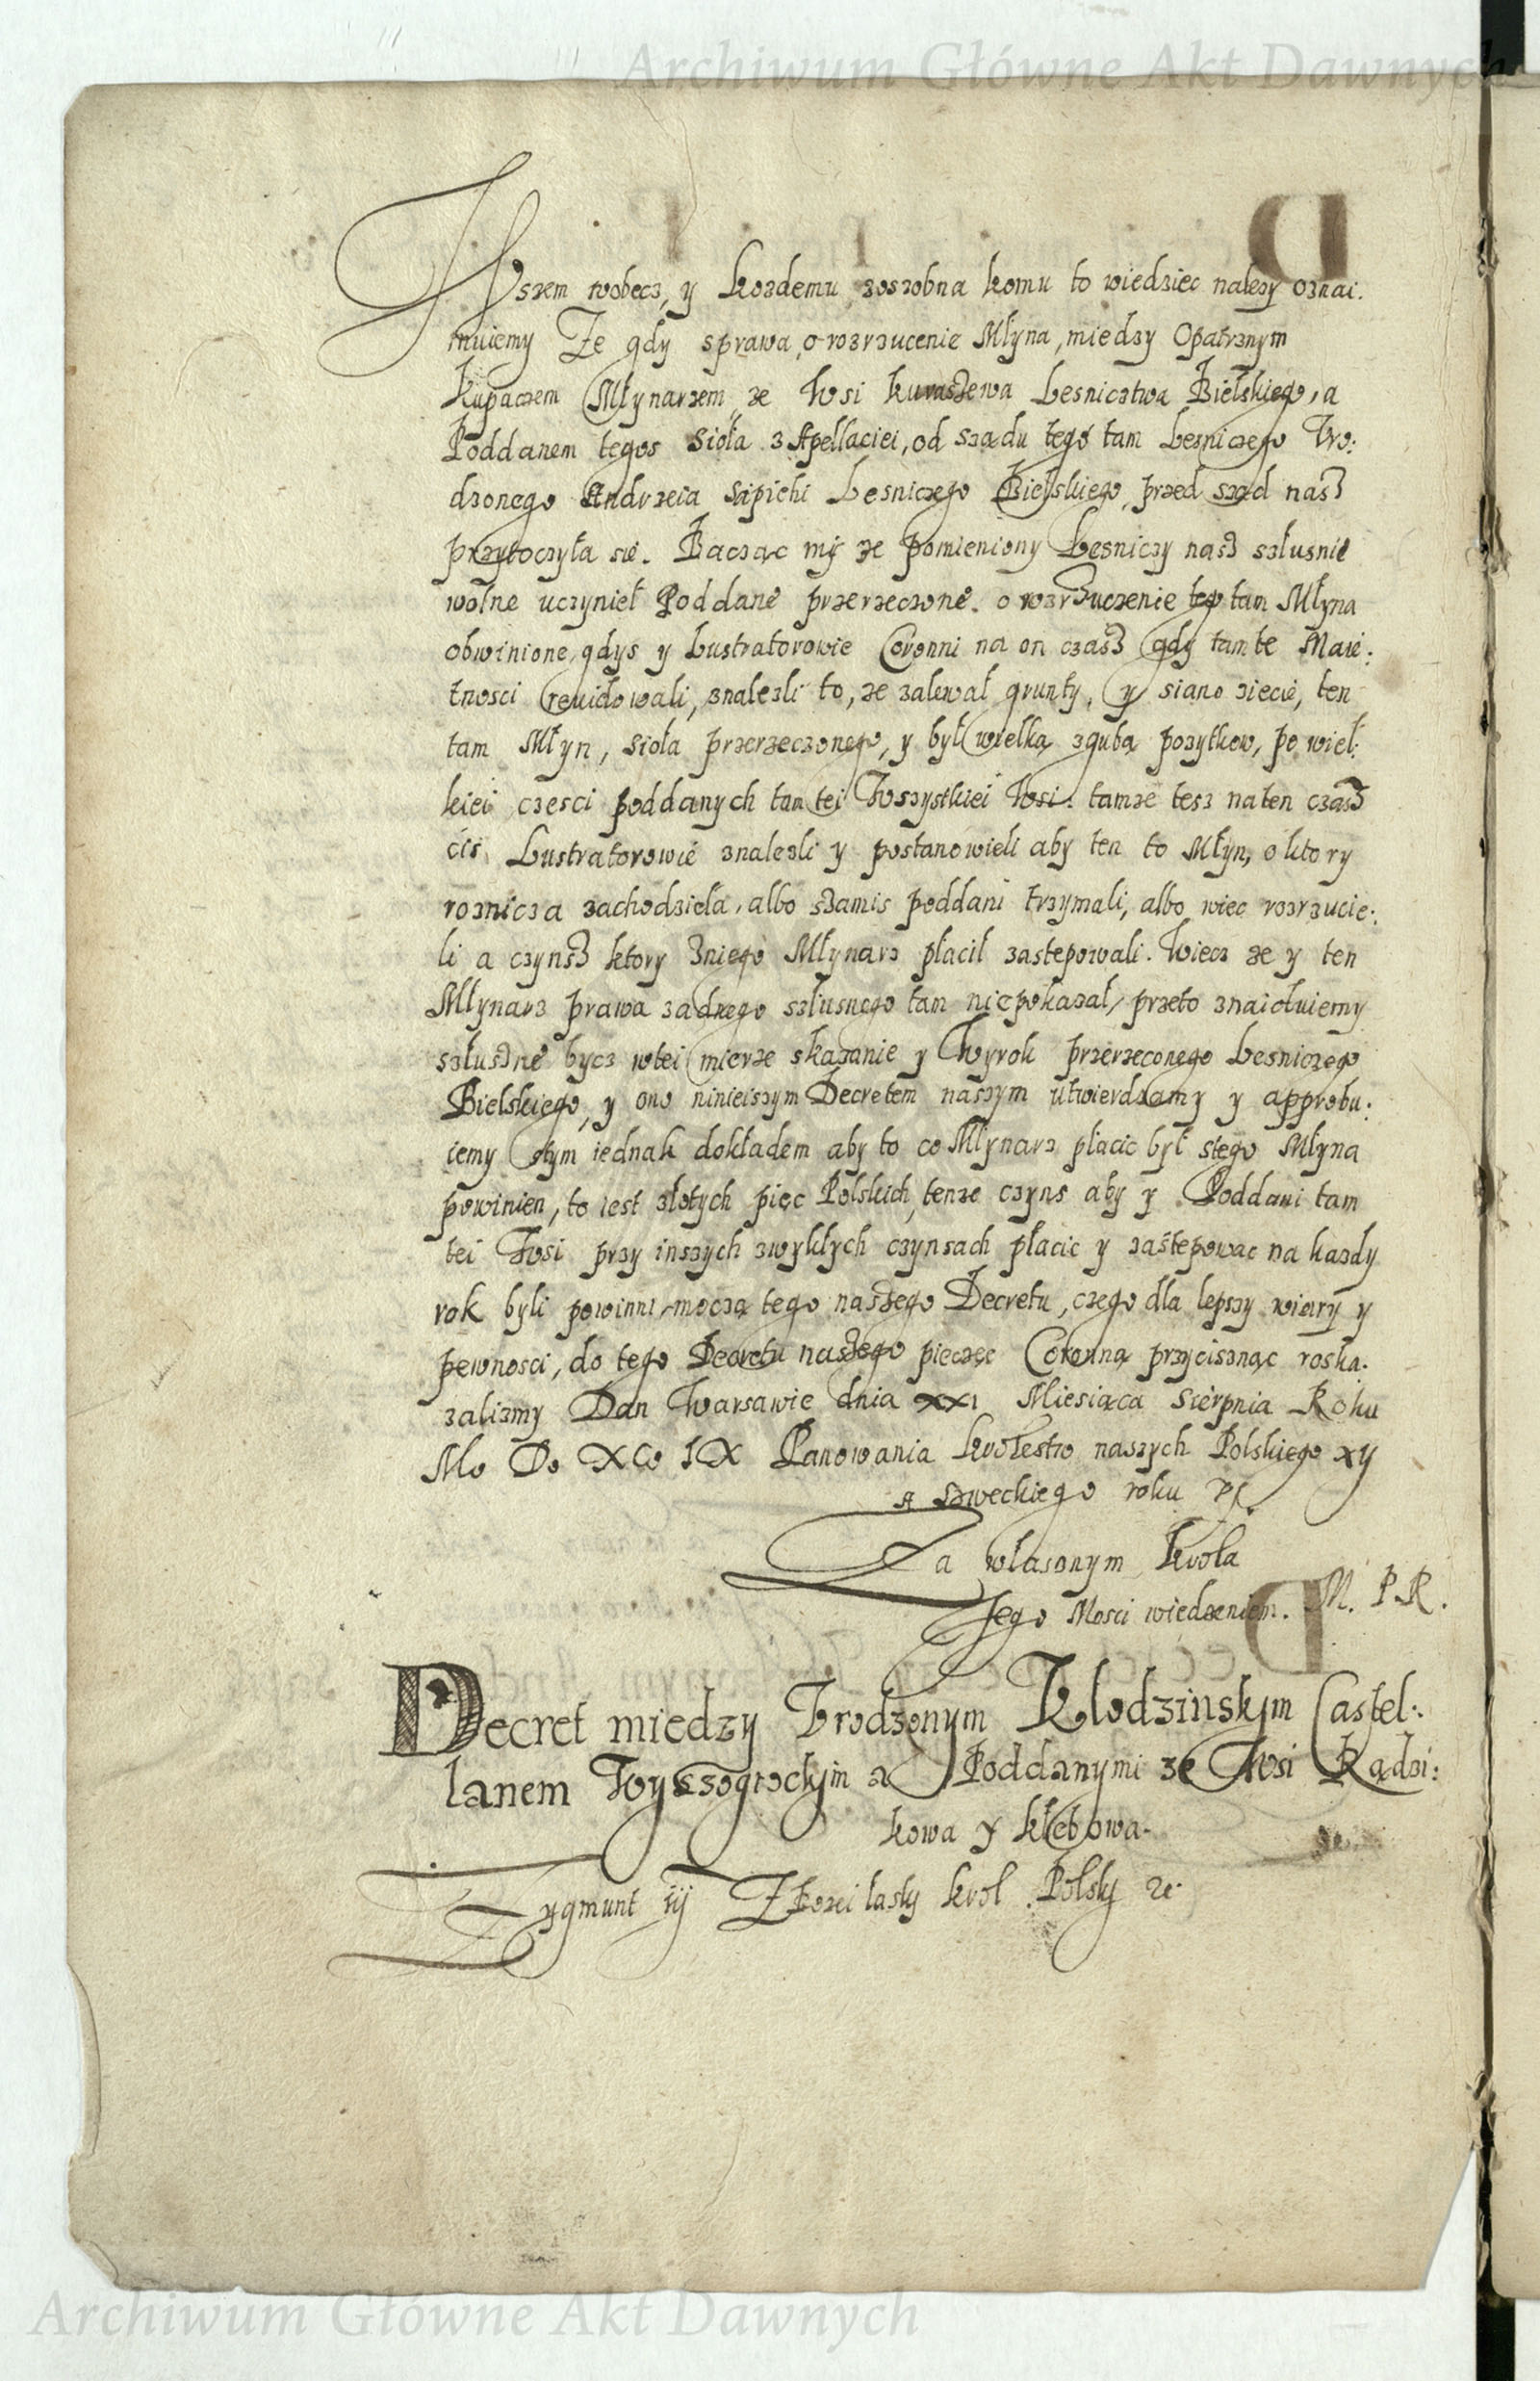 Archiwum Główne Akt Dawnych
Wszem wobecz, y kozdemu zoszobna komu to wiedziec nalezy oznai:
muiemy Ze gdy sprawa, o rozrzucenie Młyna, miedzy Opatrznym
Kupaczem Młynarzem ze Wsi Kuraszewa Lesnicztwa Bielskiego, a
Poddanem tegos Sioła z Apellaciei, od szadu tego tam Lesniczego Vro:
dzonego Andrzeia Sapiehi Lesniczego Bielskiego, przed sząd nasz
przytoczyła sie. Bacząc my ze pomieniony Lesniczy nasz szlusnie
wolne uczynieł Poddane przerzeczone. o rozrzuczenie tego tam Młyna
obwinione, gdys y Lustratorowie Coronni na on czasz gdy tamte Maie:
tnosci rewidowali, znalezli to, ze zalewał grunty, y siano zięcie, ten
tam Młyn, sioła przerzeczonego, y był wielką zgubą pozytkow, po wiel:
kiei czesci poddanych tamtei Wszystkiei Wsi. tamze tesz naten czasz
cis Lustratorowie znalezli y postanowieli aby ten to Młyn, o ktory
roznicza zachodzieła, albo szamis poddani trzymali, albo wiec rozrzucie:
li a czynsz ktory zniego Młynarz płacił zastepowali. Wiecz ze y ten
Młynarz prawa zadnego szlusnego tam niepokazał, przeto znaiduiemy
szluszne bycz wtei mierze skazanie y Wyrok przerzeconego Lesniczego
Bielskiego, y ono ninieiszym Decretem naszym utwierdzamy y approbu:
iemy stym iednak dokładem aby to co Młynarz płacic był stego Młyna
powinien, to iest złotych pięc Polskich, tenze czyns aby y Poddani tam
tei Wsi przy inszych zwykłych czynsach płacic y zastepowac na kazdy
rok byli powinni moczą tego naszego Decretu, czego dla lepszy wiary y
pewnosci, do tego Decretu naszego pieczęc Coronną przycisznąc roska:
zalizmy Dan Warsawie dnia XXI Miesiąca Sierpnia Roku
Mo Do XCo IX Panowania Krolestw naszych Polskiego XIJ
A szweckiego roku
Za własznym Krola
Jego Mosci wiedzeniem. M. P R.
Decret miedzy Vrodzonym Klodzinskym Castel:
lanem Wyszsogrockym a Poddanymi ze Wsi Kądzi:
kowa y kłebowa.
Zygmunt iij Z Bozei łasky krol Polsky
Archiwum Główne Akt Dawnych